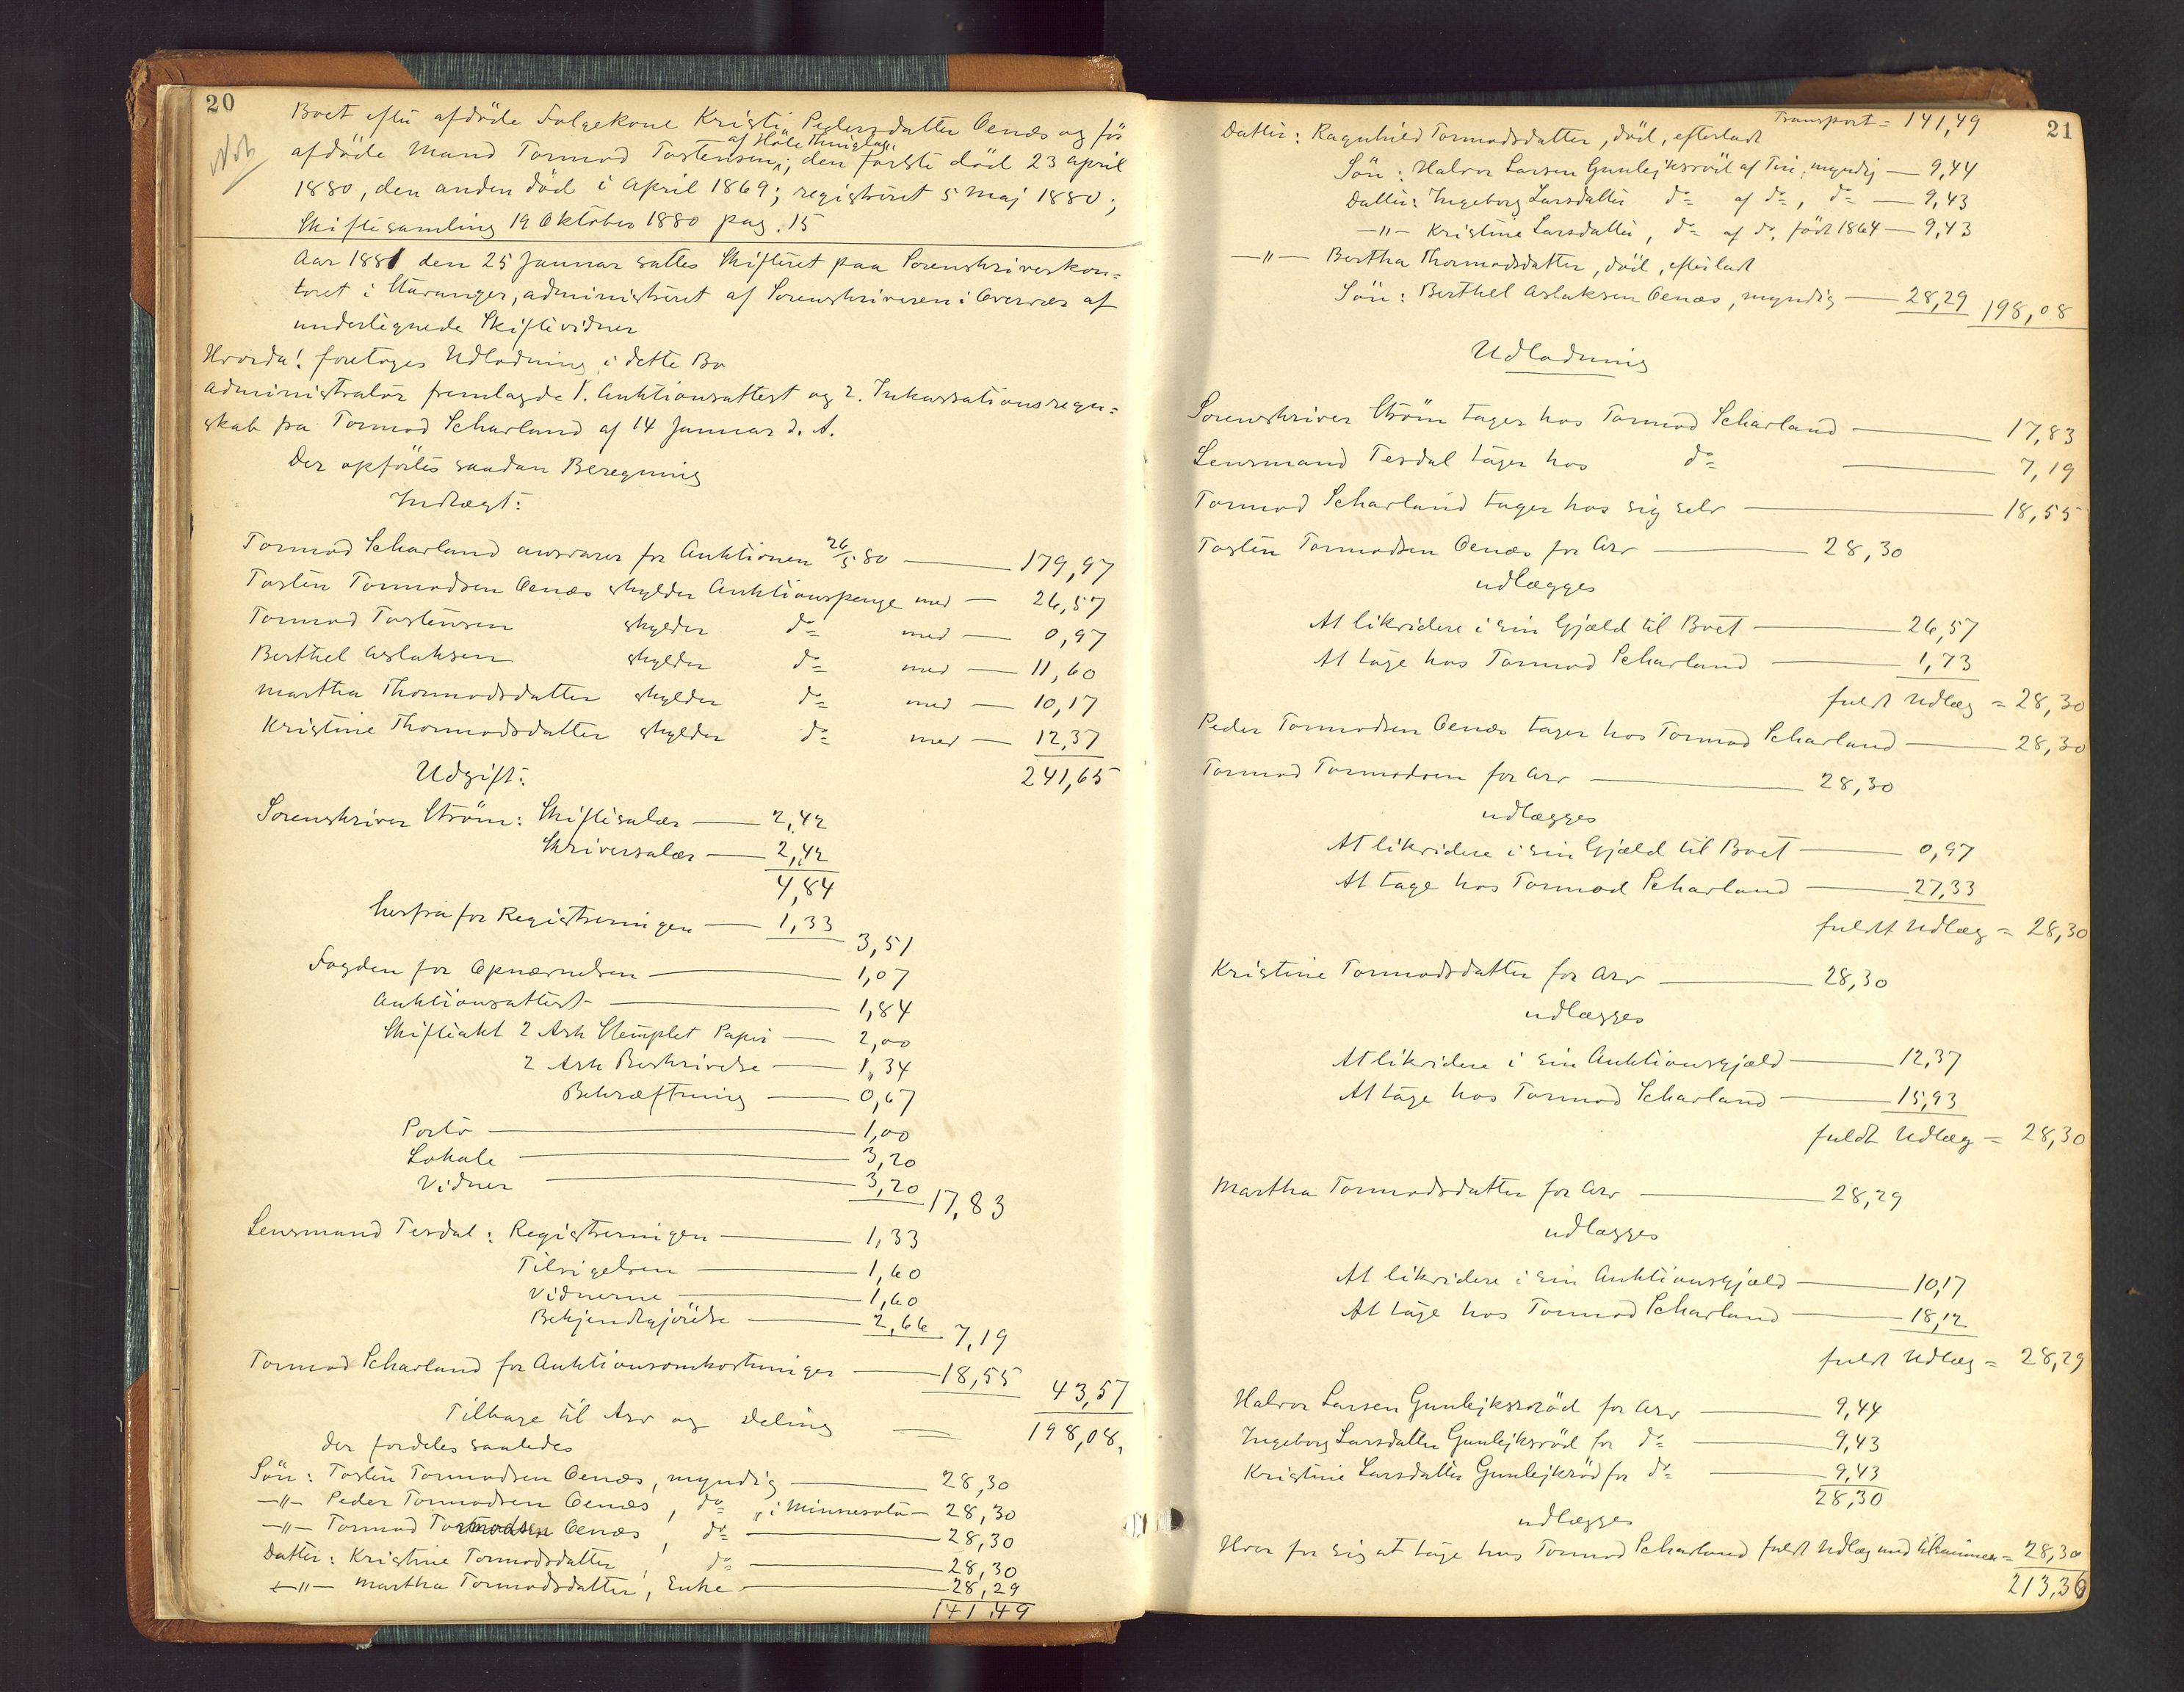 20
Boet efter afdöde Folgekone Kristi Pedersdatter Oenæs og för
af Höle Thinglag
afdöde Mand Tormod Tostensen, ; den förste död 23 April
1880, den anden död i April 1869; registreret 5 Maj 1880;
Skiftesamling 19 Oktober 1880 pag. 15
Aar 1881 den 25 Januar sattes Skifteret paa Sorenskriverkon=
toret i Stavanger, administreret af Sorenskriveren i Overvær af
undertegnede Skiftevidner
Hvorda! foretoges Udlodning i dette Bo
Administrator fremlagde 1. Auktionsattest og 2. Inkassationsregn=
skab fra Tormod Scharland af 14 Januar d. A.
Der opförtes saadan Beregning
Indtægt:
Tormod Scharland ansvarer for Auktionen 26/5 80 — 179,97
Tosten Tormodsen Oenæs skylder Auktionspenge med — 26,57
Tormod Tostensen skylder do= med — 0,97
Berthel Aslaksen skylder do= med — 11,60
Martha Thormodsdatter skylder do= med — 10,17
Kristine Thormodsdatter skylder do= med — 12,37
241,65
Udgift:
Sorenskriver Ström: Skiftesalær — 2,42
Skriversalær — 2,42
4,84
herfra for Registreringen — 1,33
3,51
Fogden for Opnævnelsen — 1,07
Auktionsattest — 1,84
Skifteakt 2 Ark Stemplet Papir — 2,00
2 Ark Beskrivelse — 1,34
Bekræftning — 0,67
Porto — 1,00
Lokale — 3,20
Vidner — 3,20 17,83
Lensmand Tesdal: Registreringen — 1,33
Tilsigelsen — 1,60
Vidnerne — 1,60
Bekjendtgjörelse — 2,66 7,19
Tormod Scharland for Auktionsomkostninger — 18,55 43,57
Tilbage til Arv og Deling = 198,08.
der fordeles saaledes
Sön: Tosten Tormodsen Oenæs, myndig — 28,30
—"— Peder Tormodsen Oenæs, do= , i Minnesota — 28,30
—"— Tormod Tormodsen Oenæs, do= — 28,30
Datter: Kristine Tormodsdatter, do= — 28,30
—"— Martha Tormodsdatter, Enke — 28,29
141,49
21
Transport = 141,49
Datter: Ragnhild Tormodsdatter, död, efterladt
Sön: Halvor Larsen Gunlejksröd af Tin, myndig — 9,44
Datter: Ingeborg Larsdatter do= af do=, do= — 9,43
—"— Kristine Larsdatter, do= af do, född 1864 — 9,43
—"— Bertha Thormodsdatter, död, efterladt
Sön: Berthel Aslaksen Oenæs, myndig — 28,29 198,08
Udlodning
Sorenskriver Ström tager hos Tormod Scharland — 17,83
Lensmand Tesdal tager hos do= — 7,19
Tormod Scharland tager hos sig selv — 18,55
Tosten Tormodsen Oenæs for Arv — 28,30
udlægges
At likvidere i sin Gjæld til Boet — 26,57
At tage hos Tormod Scharland — 1,73
fuldt Udlæg = 28,30
Peder Tormodsen Oenæs tager hos Tormod Scharland — 28,30
Tormod Tormodsen for Arv — 28,30
udlægges
At likvidere i sin Gjæld til Boet — 0,97
At tage hos Tormod Scharland — 27,33
fuldt Udlæg = 28,30
Kristine Tormodsdatter for Arv — 28,30
udlægges
At likvidere i sin Auktionsgjæld — 12,37
At tage hos Tormod Scharland — 15,93
fuldt Udlæg = 28,30
Martha Tormodsdatter for Arv — 28,29
udlægges
At likvidere i sin Auktionsgjæld — 10,17
At tage hos Tormod Scharland — 18,12
fuldt Udlæg = 28,29
Halvor Larsen Gunlejksröd for Arv — 9,44
Ingeborg Larsdatter Gunlejksröd for do= — 9,43
Kristine Larsdatter Gunlejksröd for do= — 9,43
28,30
udlægges
Hver for sig at tage hos Tormod Scharland fuldt Udlæg med tilsammen = 28,30
213,36